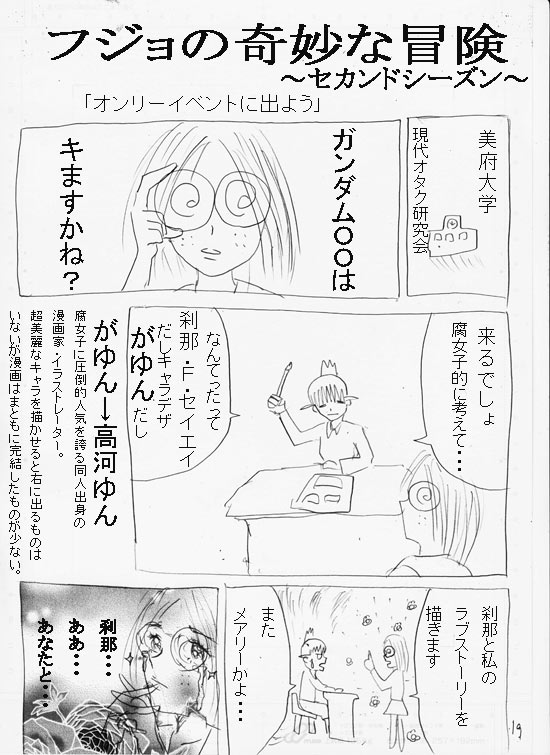 フジョの奇妙な冒険
～セカンドシーズン～
「オンリーイベントに出よう」
美府大学
現代オタク研究会
ガンダム００は
キますかね？
来るでしょ
腐女子的に考えて・・・
なんてったって
刹那・F・セイエイ
だしキャラデザ
がゆんだし
がゆん→高河ゆん
腐女子に圧倒的人気を誇る同人出身の
漫画家・イラストレーター。
超美麗なキャラを描かせると右に出るものは
いないが漫画はまともに完結したものが少ない。
刹那と私の
ラブストーリーを
描きます
また
メアリーかよ・・・
刹那・・・
ああ・・・
あなたと・・・
19